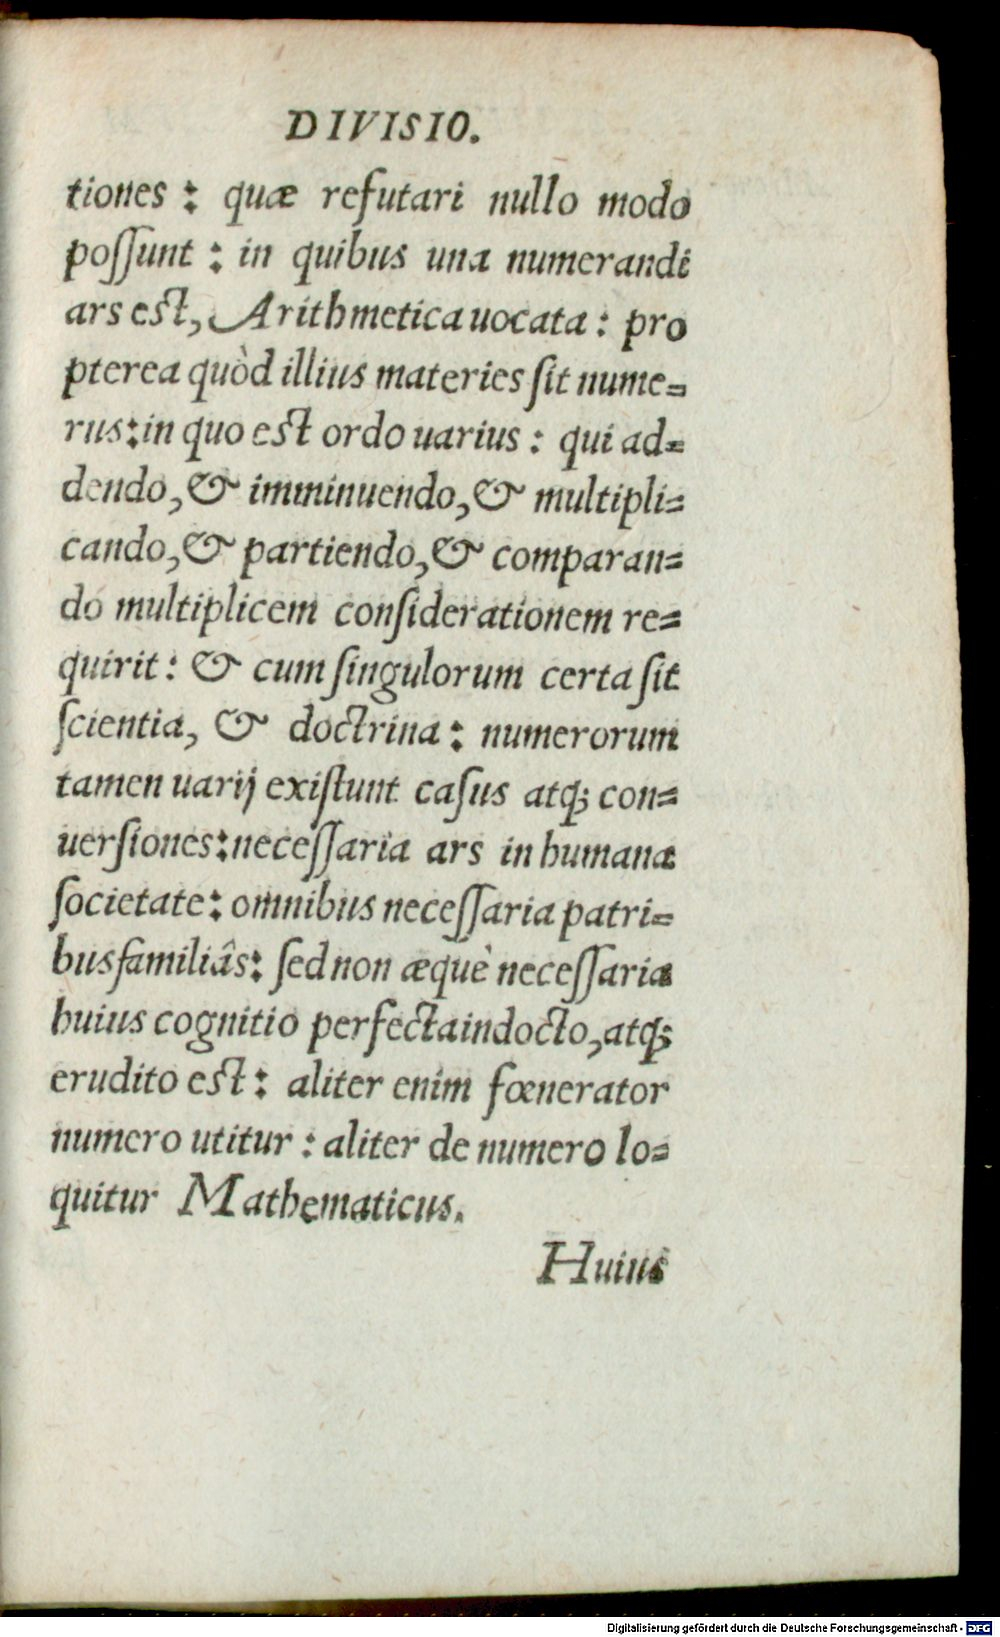 DIVISIO.
tiones : quæ refutari nullo modo
poſſunt : in quibus una numerandi
ars est, Arithmetica uocata : pro
pterea quòd illius materies ſit nume=
rus: in quo est ordo uarius : qui ad=
dendo, & imminuendo, & multipli=
cando, & partiendo, & comparan=
do multiplicem conſiderationem re=
quirit : & cum ſingulorum certa ſit
ſcientia, & doctrina : numerorum
tamen uarij exiſtunt caſus atq; con=
uerſiones: neceſſaria ars in humana
ſocietate: omnibus neceſſaria patri=
busfamiliâs: ſed non æquè neceſſaria
huius cognitio perfecta indocto, atq;
erudito est : aliter enim fœnerator
numero utitur : aliter de numero lo=
quitur Mathematicus.
Huius
Digitalisierung gefördert durch die Deutsche Forschungsgemeinschaft - DFG